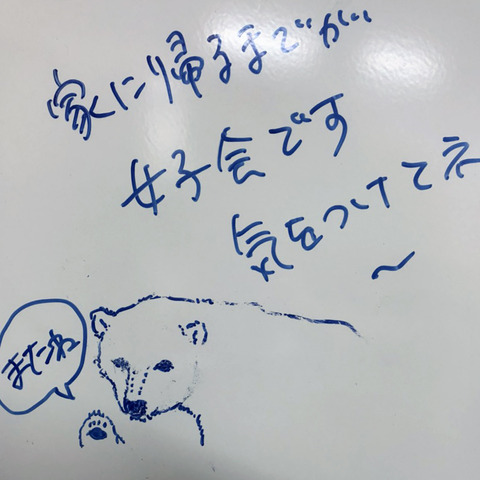 家に帰るまでが
女子会です
気をつけてネ
〜
またね